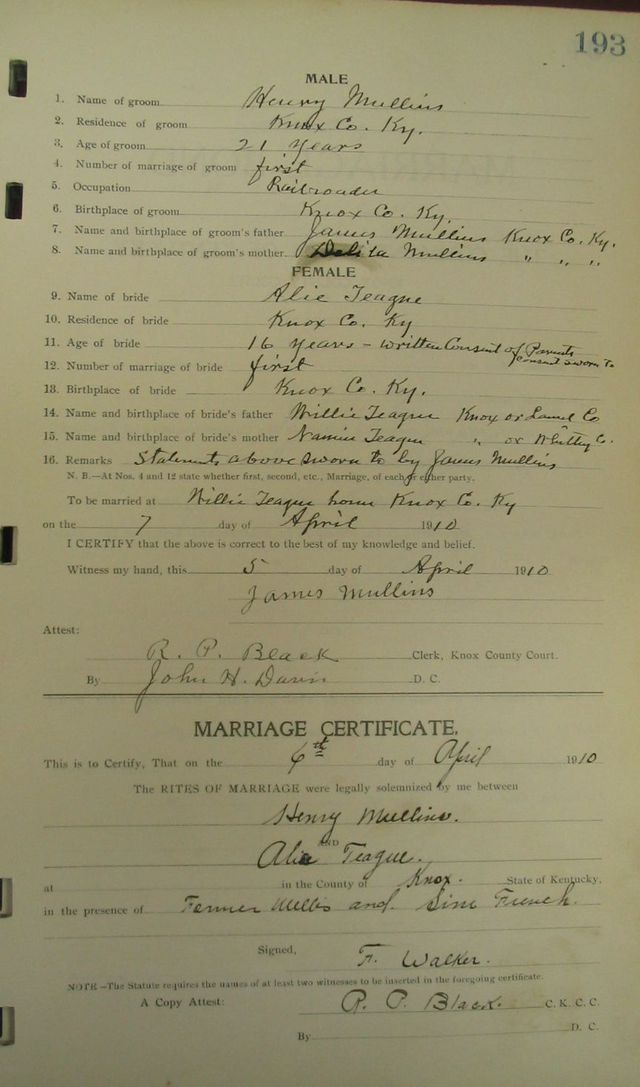 193
MALE
1. Name of groom Henry Mullins
2. Residence of groom Knox Co. Ky.
3. Age of groom 21 Years
4. Number of marriage of groom first
5. Occupation Railroader
6. Birthplace of groom Knox Co. Ky.
7. Name and birthplace of groom's father James Mullins Knox Co. Ky.
8. Name and birthplace of groom's mother Mullins " " "
FEMALE
9. Name of bride Alie Teague
10. Residence of bride Knox Co. Ky
11. Age of bride 16 Years - Written Consent of Parents
consent sworn to
12. Number of marriage of bride first
13. Birthplace of bride Knox Co. Ky.
14. Name and birthplace of bride's father Willie Teague Knox or Laurel Co
15. Name and birthplace of bride's mother Nannie Teague " or Whitley Co.
16. Remarks Statements above sworn to by James Mullins
N. B.—At Nos. 4 and 12 state whether first, second, etc., Marriage, of each or either party.
To be married at Willie Teague home Knox Co. Ky
on the 7 day of April 1910
I CERTIFY that the above is correct to the best of my knowledge and belief.
Witness my hand, this 5 day of April 1910
James Mullins
Attest:
R. P. Black Clerk, Knox County Court.
By John H. Davis D. C.
MARRIAGE CERTIFICATE.
This is to Certify, That on the 6th day of April 1910
The RITES OF MARRIAGE were legally solemnized by me between
Henry Mullins.
AND
Alie Teague.
at in the County of Knox. State of Kentucky,
in the presence of and French.
Signed, F. Walker.
NOTE—The Statute requires the names of at least two witnesses to be inserted in the foregoing certificate.
A Copy Attest: R. P. Black. C. K. C. C.
By D. C.